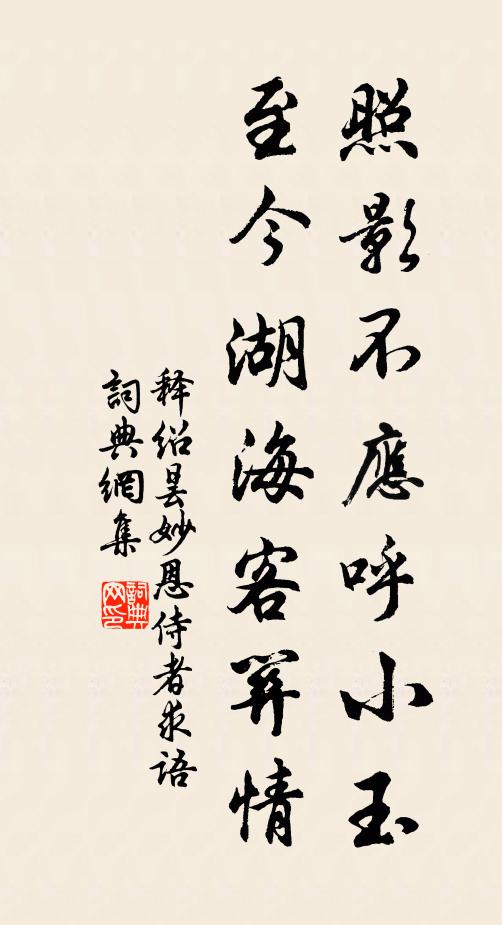 照影不應呼小玉
至今湖海客關情
释绍昙妙恩侍者求語
詞典網集
詞典网印